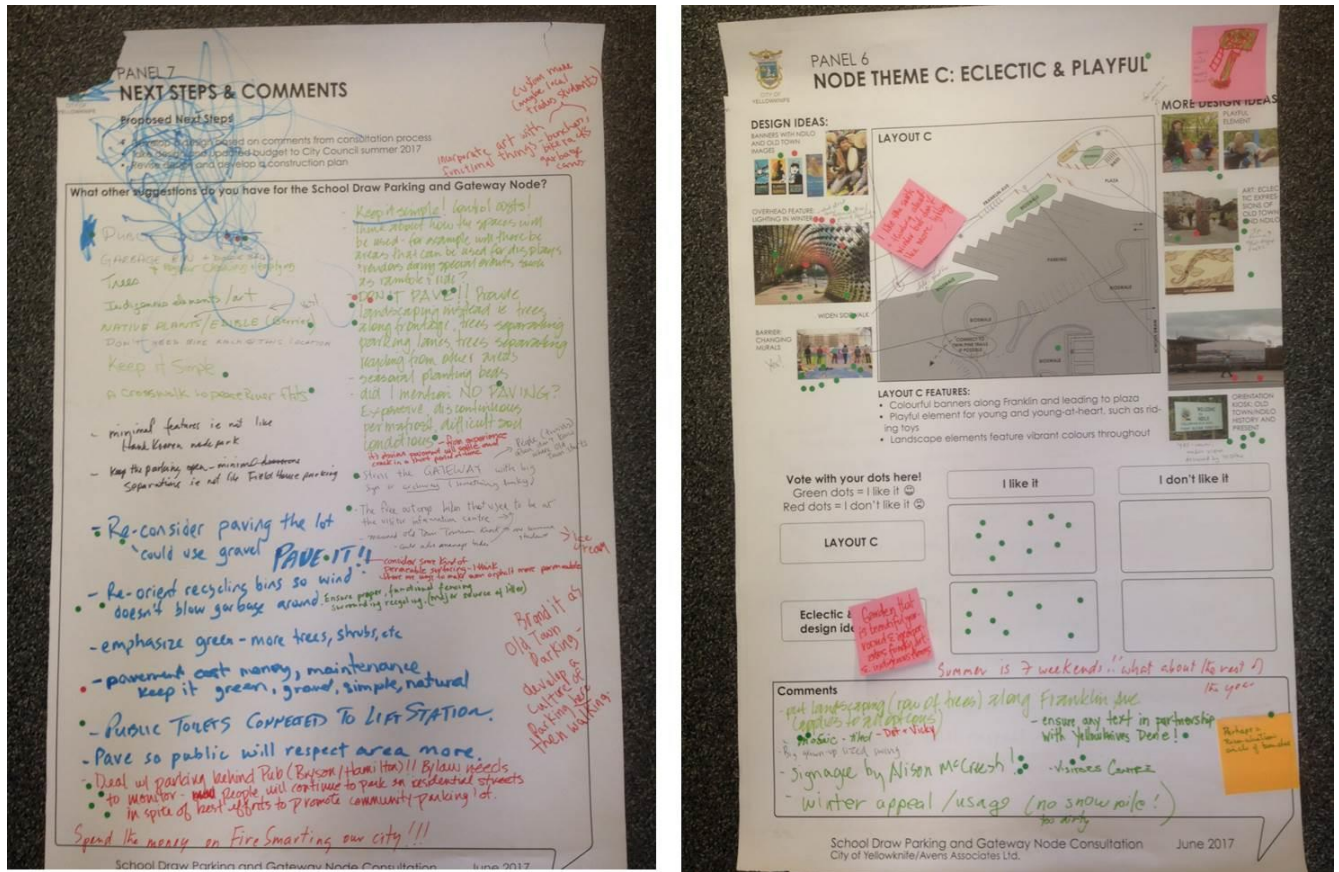 PANEL 7
NEXT STEPS & COMMENTS
CITY OF
YELLOWKNIFE
Proposed Next Steps
design based on comments from consultation process
updated budget to City Council summer 2017
and develop a construction plan
custom made
(maybe local
trades students)
incorporate art with
functional things, benches,
bike racks
garbage
cans
What other suggestions do you have for the School Draw Parking and Gateway Node?
PUBLIC
GARBAGE BIN
Trees
Indigenous elements/art
NATIVE PLANTS/EDIBLE (berries)
DON'T NEED BIKE RACK @ THIS LOCATION
Keep it Simple
a crosswalk to peace River Flats
- minimal features ie not like
node park
- keep the parking open - minimal
separations ie not like Field House parking
- Keep it simple! Control costs!
think about how the spaces will
be used - for example will there be
areas that can be used for displays
/vendors during special events such
as ramble & ride?
- DON'T PAVE!! Provide
landscaping instead ie trees
along frontage, trees separating
parking lanes, trees separating
from other areas
- seasonal planting beds
- did I mention NO PAVING?
Expensive, discontinuous
permafrost, difficult soil
conditions
- from experience
crack in a short period of time
- Stress the GATEWAY with big
sign or archway (something funky)
- The free outcrop
the visitor information centre
- Re-consider paving the lot
could use gravel PAVE IT!!
consider some kind of
permeable surfacing - I think
there are ways to make even asphalt more permeable
ice
cream
- Re-orient recycling bins so wind
doesn't blow garbage around.
Ensure proper, functional fencing
surrounding recycling. (major source of litter)
- emphasize green - more trees, shrubs, etc
- pavement cost money, maintenance
keep it green, gravel, simple, natural
Brand it as
Old Town
Parking -
develop a
culture of
parking here
then walking.
- PUBLIC TOILETS CONNECTED TO LIFT STATION.
- Pave so public will respect area more.
- Deal w/ parking behind Pub (Bryson/Hamilton)!! Bylaw needs
to monitor - people will continue to park on residential streets
in spite of best efforts to promote community parking lot.
Spend the money on Fire Smarting our city!!!
School Draw Parking and Gateway Node Consultation June 2017
CITY OF
YELLOWKNIFE
PANEL 6
NODE THEME C: ECLECTIC & PLAYFUL
DESIGN IDEAS:
BANNERS WITH NDILO
AND OLD TOWN
IMAGES
OVERHEAD FEATURE:
LIGHTING IN WINTER
WIDEN SIDEWALK
BARRIER:
CHANGING
MURALS
Yes!
LAYOUT C
FRANKLIN AVE
PLAZA
PARKING
BOARDWALK
MORE DESIGN IDEAS
PLAYFUL
ELEMENT
ART: ECLEC
TIC EXPRES
SIONS OF
OLD TOWN
AND NDILO
ORIENTATION
KIOSK: OLD
TOWN/NDILO
HISTORY AND
PRESENT
LAYOUT C FEATURES:
• Colourful banners along Franklin and leading to plaza
• Playful element for young and young-at-heart, such as rid-
ing toys
• Landscape elements feature vibrant colours throughout
Vote with your dots here!
Green dots = I like it
Red dots = I don't like it
I like it
I don't like it
LAYOUT C
Eclectic &
design ide
Garden that
is beautiful year
round
Summer is 7 weekends!! what about the rest of
the year
Comments
- put landscaping (row of trees) along Franklin Ave
(applies to all options)
- mosaic - Dot & Vicky
Big grown up sized swing
- signage by Alison McCreesh!
- winter appeal/usage (no snow pile!
too dirty
- ensure any text in partnership
with Yellowknives Dene!
- VISITORS CENTRE
Perhaps a
School Draw Parking and Gateway Node Consultation June 2017
City of Yellowknife/Avens Associates Ltd.